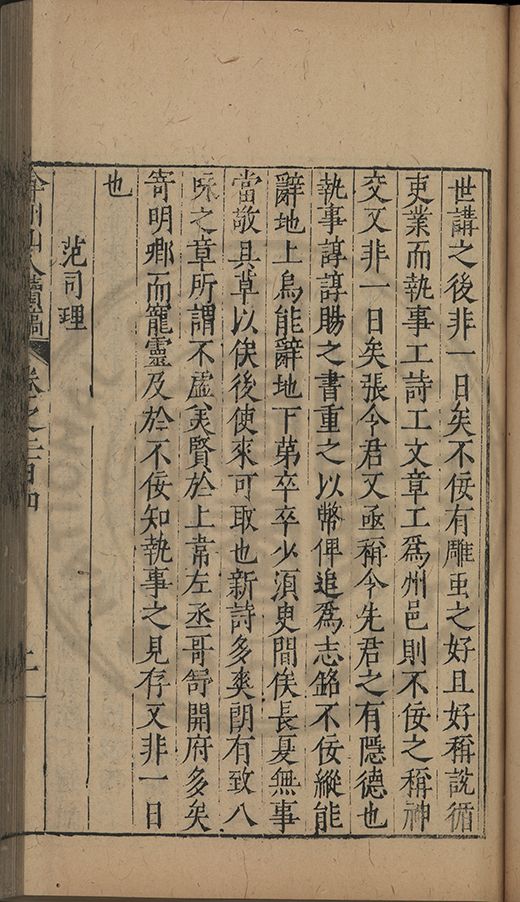 世講之後非一日矣不佞有雕虫之好且好稱說循
吏業而執事工詩工文章工爲州邑則不佞之稱神
交又非一日矣張令君又亟稱今先君之有隱德也
執事諄諄賜之書重之以幣俾追爲志銘不佞縱能
辭地上烏能辭地下第卒卒少須臾間俟長夏無事
當敬具草以俟後使來可取也新詩多爽朗有致八
咏之章所謂不虛美賢於上常左丞哥舒開府多矣
寄明鄉而寵靈及於不佞知執事之見存又非一日
也
范司理
弇州山人續稿
卷之二百四